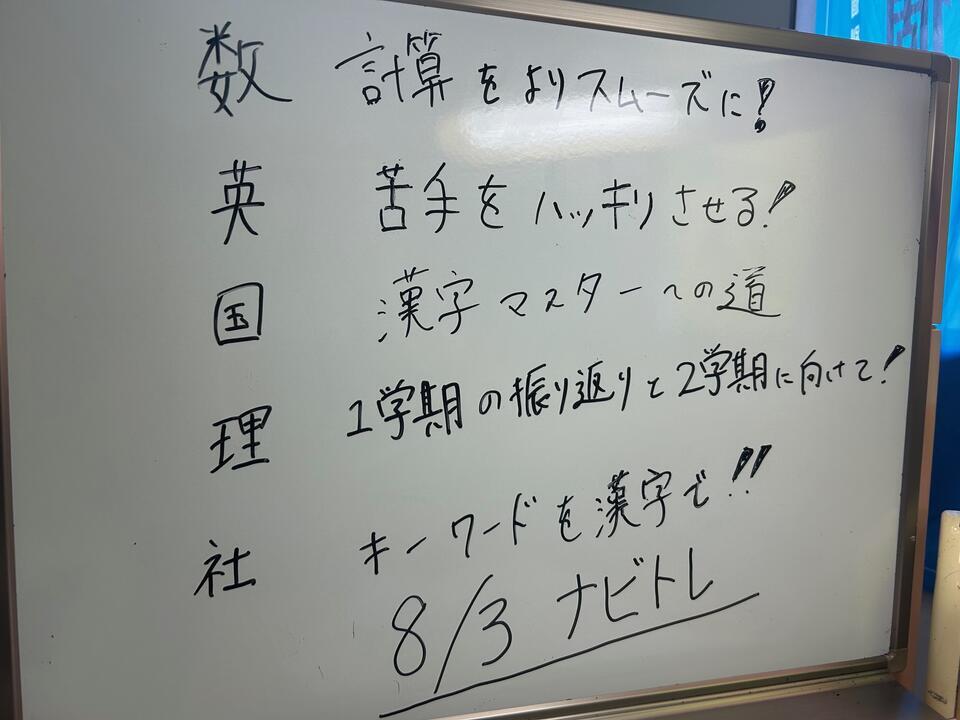 数 計算をよりスムーズに!
英 苦手をハッキリさせる!
国 漢字マスターへの道
理 1学期の振り返りと2学期に向けて!
社 キーワードを漢字で!!
8/3 ナビトレ